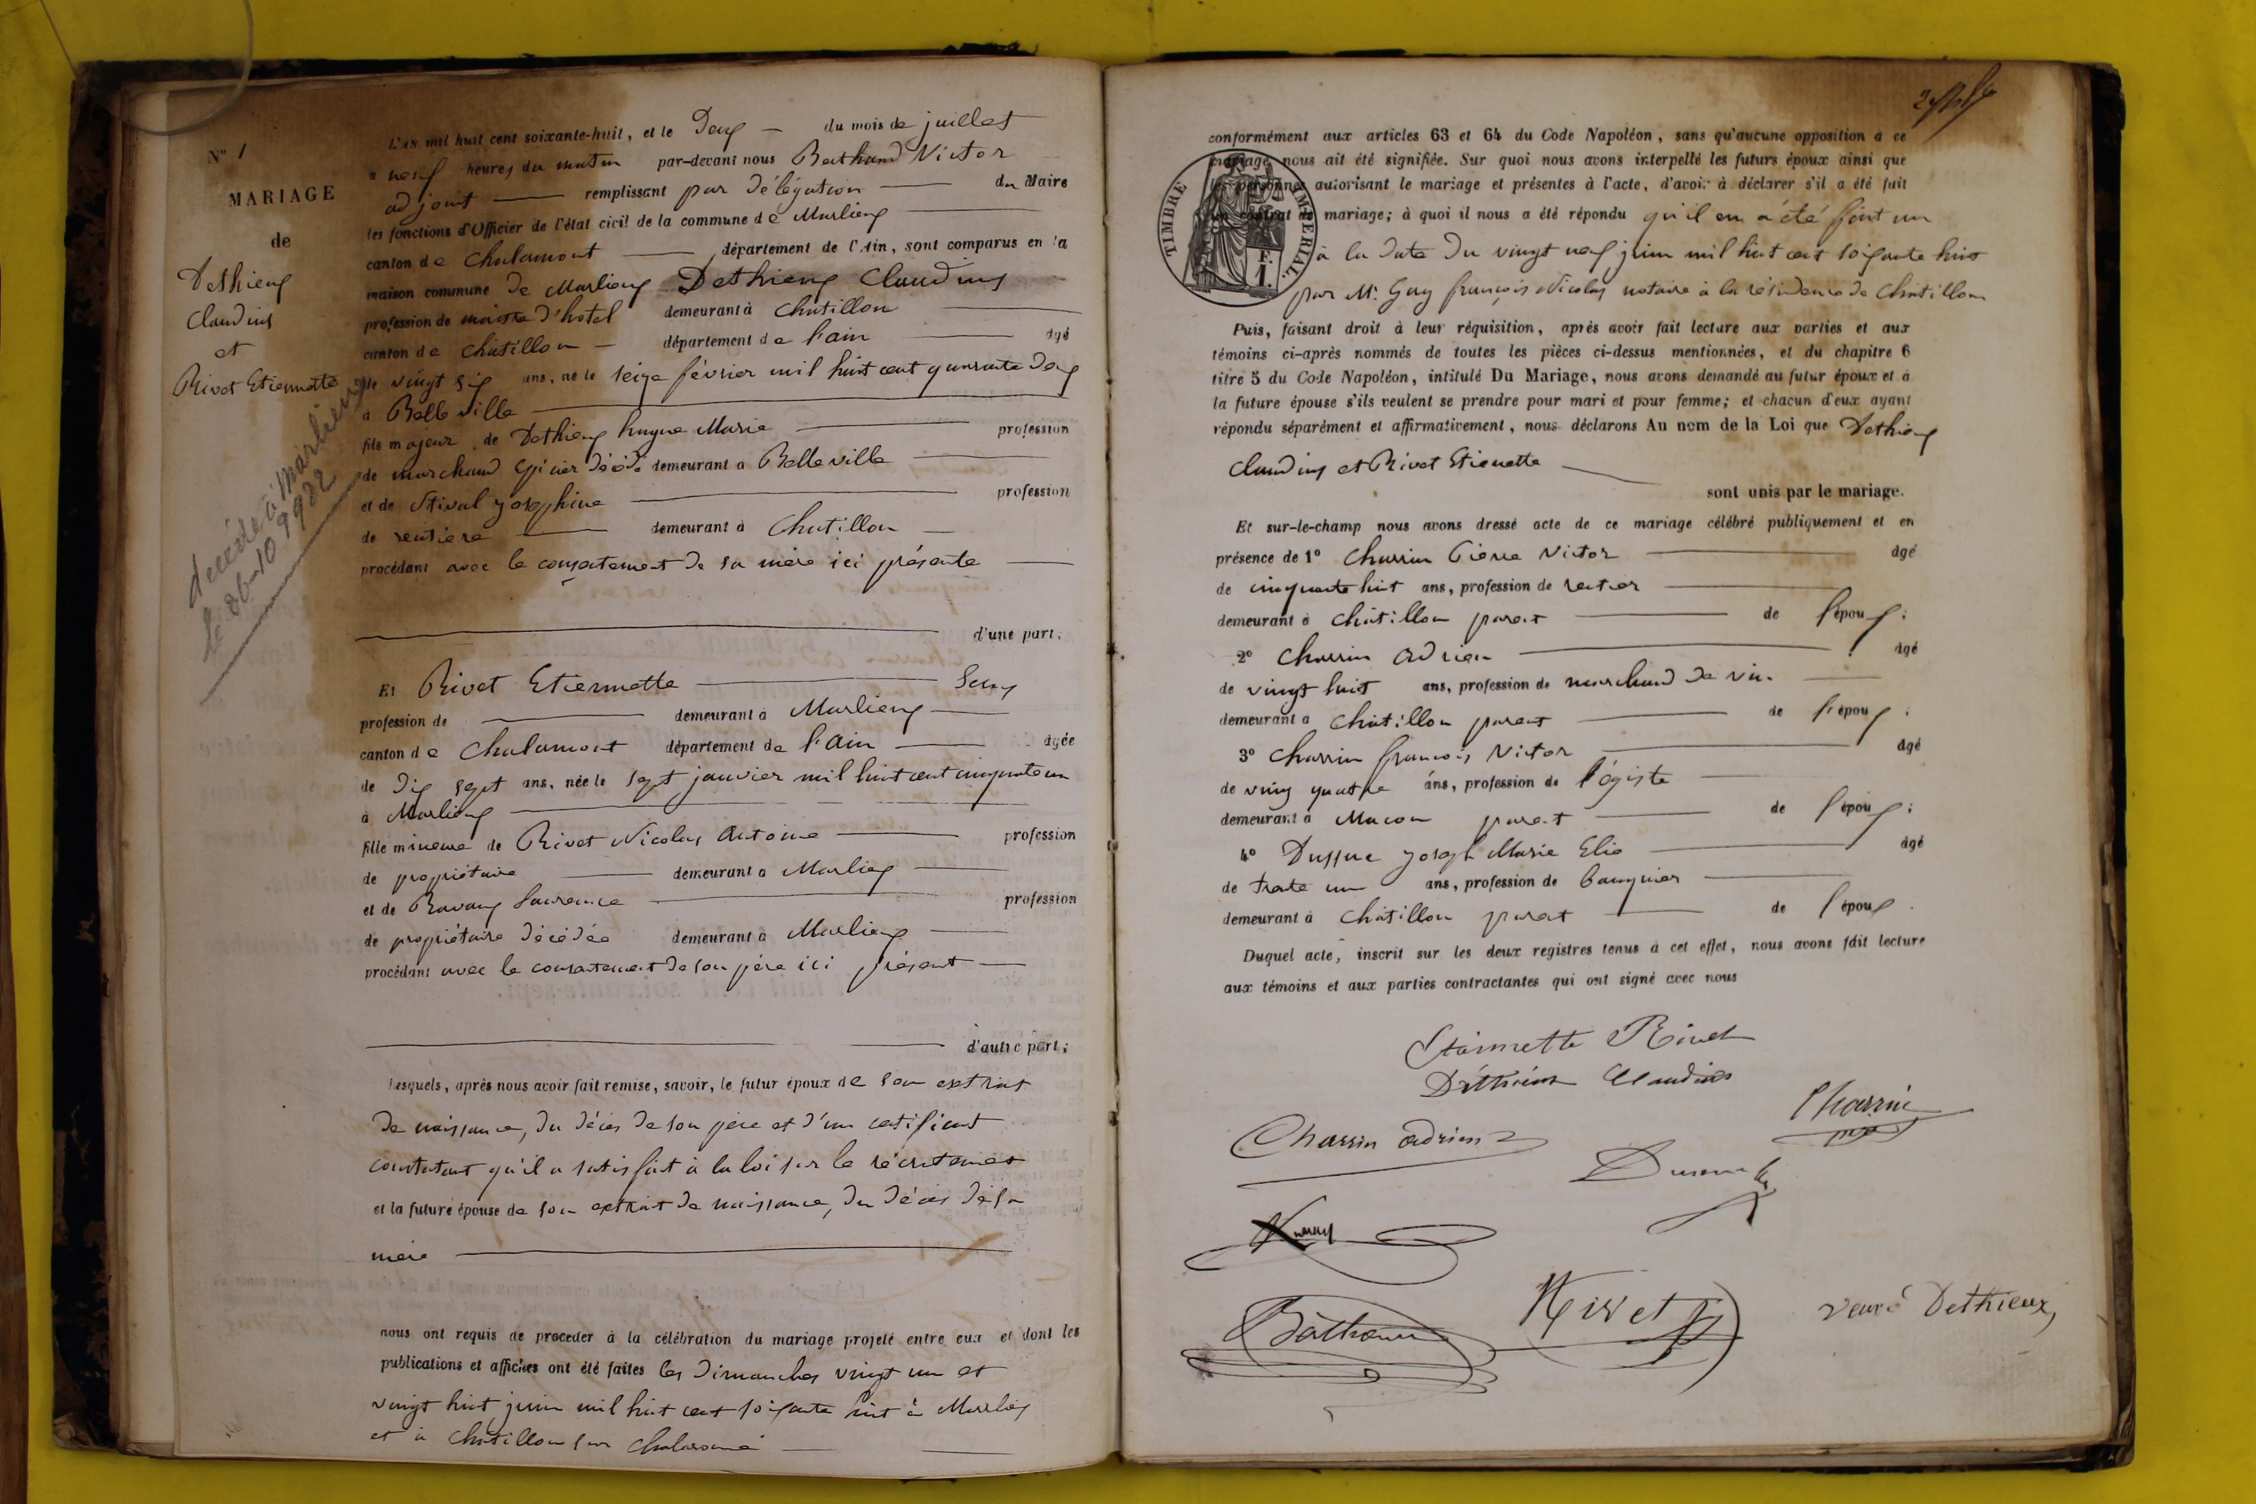 N° 1
MARIAGE
de
Dethieux
Claudius
et
Rivet Etiennette
décédé à Marlieux
le 26-10 1922
L'an mil huit cent soixante-huit, et le Deux du mois de juillet
à neuf heures du matin par-devant nous Berthaud Victor
adjoint remplissant par délégation du Maire
les fonctions d'Officier de l'état civil de la commune de Marlieux
canton de Chalamont département de l'Ain, sont comparus en la
maison commune de Marlieux Dethieux Claudius
profession de maitre d'hotel demeurant à Chatillon
canton de Chatillon département de l'ain âgé
de vingt six ans, né le seize février mil huit cent quarante deux
à Belleville
fils majeur de Dethieux hugue Marie profession
de marchand Epicier décédé demeurant à Belleville
et de Stival josephine profession
de rentière demeurant à Chatillon
procédant avec le consentement de sa mère ici présente
d'une part;
Et Rivet Etiennette Sans
profession de demeurant à Marlieux
canton de Chalamont département de l'Ain âgée
de dix sept ans, née le sept janvier mil huit cent cinquante un
à Marlieux
fille mineure de Rivet Nicolas Antoine profession
de propriétaire demeurant à Marlieux
et de Laurence profession
de propriétaire décédée demeurant à Marlieux
procédant avec le consentement de son père ici présent
d'autre part;
Lesquels, après nous avoir fait remise, savoir, le futur époux de son extrait
de naissance, du décès de son père et d'un certificat
constatant qu'il a satisfait à la loi sur le récrutement
et la future épouse de son extrait de naissance, du décès de sa
mère
nous ont requis de proceder à la célébration du mariage projeté entre eux et dont les
publications et affiches ont été faites les dimanches vingt un et
vingt huit juin mil huit cent soixante huit à Marlieux
et à Chatillon sur Chalaronne
conformément aux articles 63 et 64 du Code Napoléon, sans qu'aucune opposition à ce
mariage nous ait été signifiée. Sur quoi nous avons interpellé les futurs époux ainsi que
les personnes autorisant le mariage et présentes à l'acte, d'avoir à déclarer s'il a été fait
un contrat de mariage; à quoi il nous a été répondu qu'il en a été fait un
TIMBRE IMPERIAL.
1 F.
à la date du vingt neuf juin mil huit cent soixante huit
par Mr. Guy françois Nicolas notaire à la résidence de Chatillon
Puis, faisant droit à leur réquisition, après avoir fait lecture aux parties et aux
témoins ci-après nommés de toutes les pièces ci-dessus mentionnées, et du chapitre 6
titre 5 du Code Napoléon, intitulé Du Mariage, nous avons demandé au futur époux et à
la future épouse s'ils veulent se prendre pour mari et pour femme; et chacun d'eux ayant
répondu séparément et affirmativement, nous déclarons Au nom de la Loi que Dethieux
Claudius et Rivet Etienette
sont unis par le mariage.
Et sur-le-champ nous avons dressé acte de ce mariage célébré publiquement et en
présence de 1° Charrin Pierre Victor âgé
de cinquante huit ans, profession de rentier
demeurant à Chatillon parent de l'époux;
2° Charrin Adrien âgé
de vingt huit ans, profession de marchand de vin
demeurant à Chatillon parent de l'époux;
3° Charrin françois Victor âgé
de vingt quatre ans, profession de légiste
demeurant à Macon parent de l'époux;
4° joseph Marie Elie âgé
de trente un ans, profession de banquier
demeurant à Chatillon parent de l'époux.
Duquel acte, inscrit sur les deux registres tenus à cet effet, nous avons fait lecture
aux témoins et aux parties contractantes qui ont signé avec nous
Etiennette Rivet
Déthieux Claudius
Charrin
Charrin Adrien
Rivet
veuve Dethieux